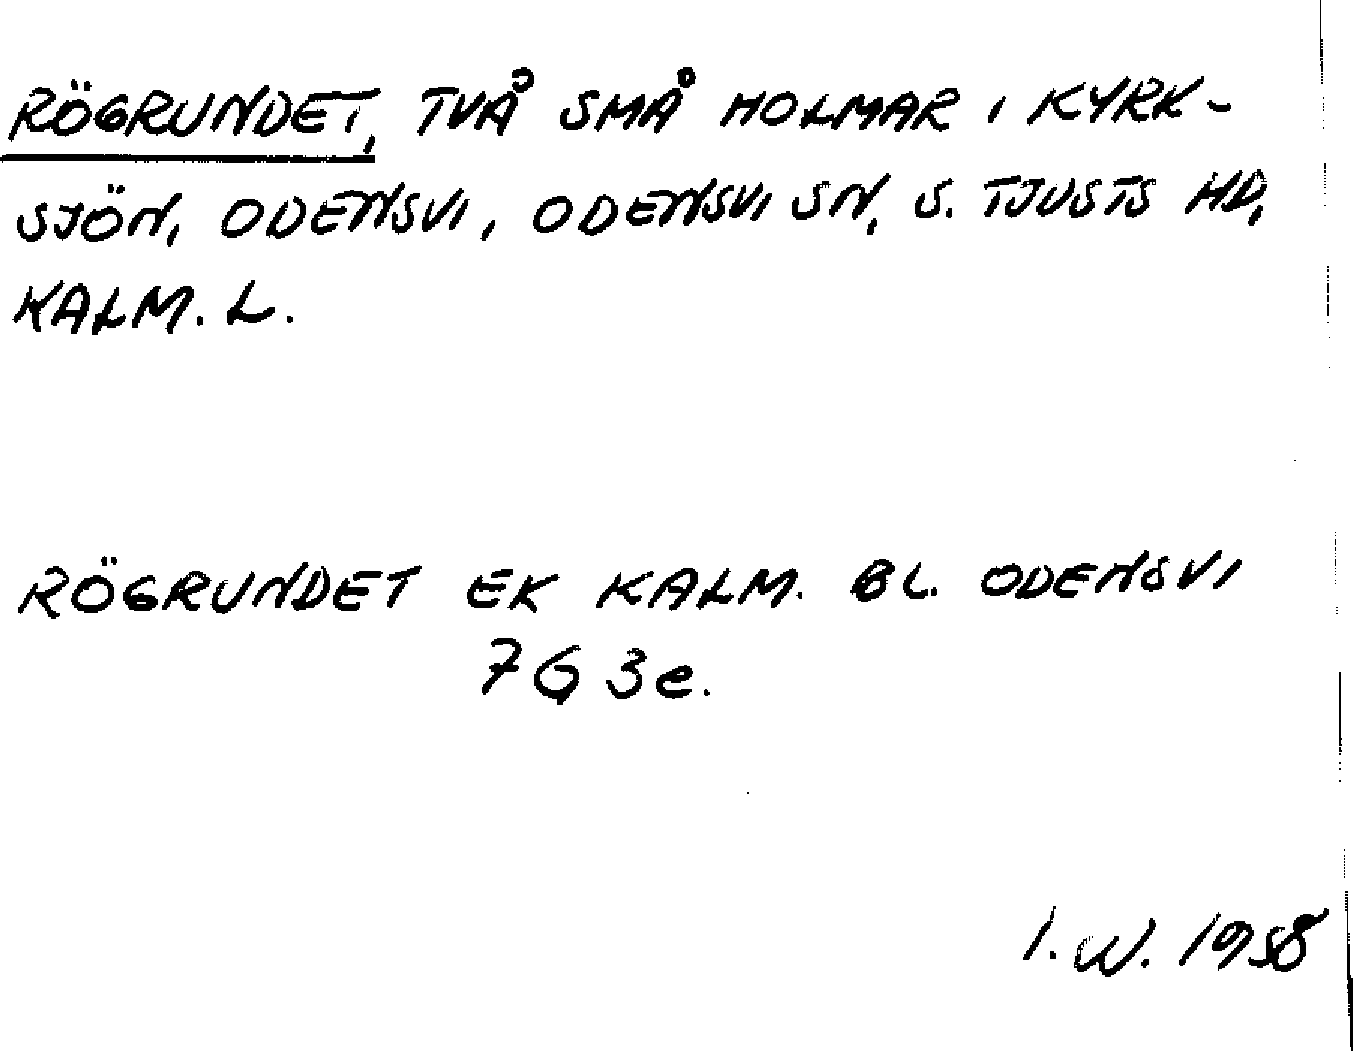 RÖGRUNDET, TVÅ SMÅ HOLMAR I KYRK-
SJÖN, ODENSVI, ODENSVI SN, S. TJUSTS HD,
KALM. L.
RÖGRUNDET EK KALM. BL. ODENSVI
7G 3e.
I. W. 1958